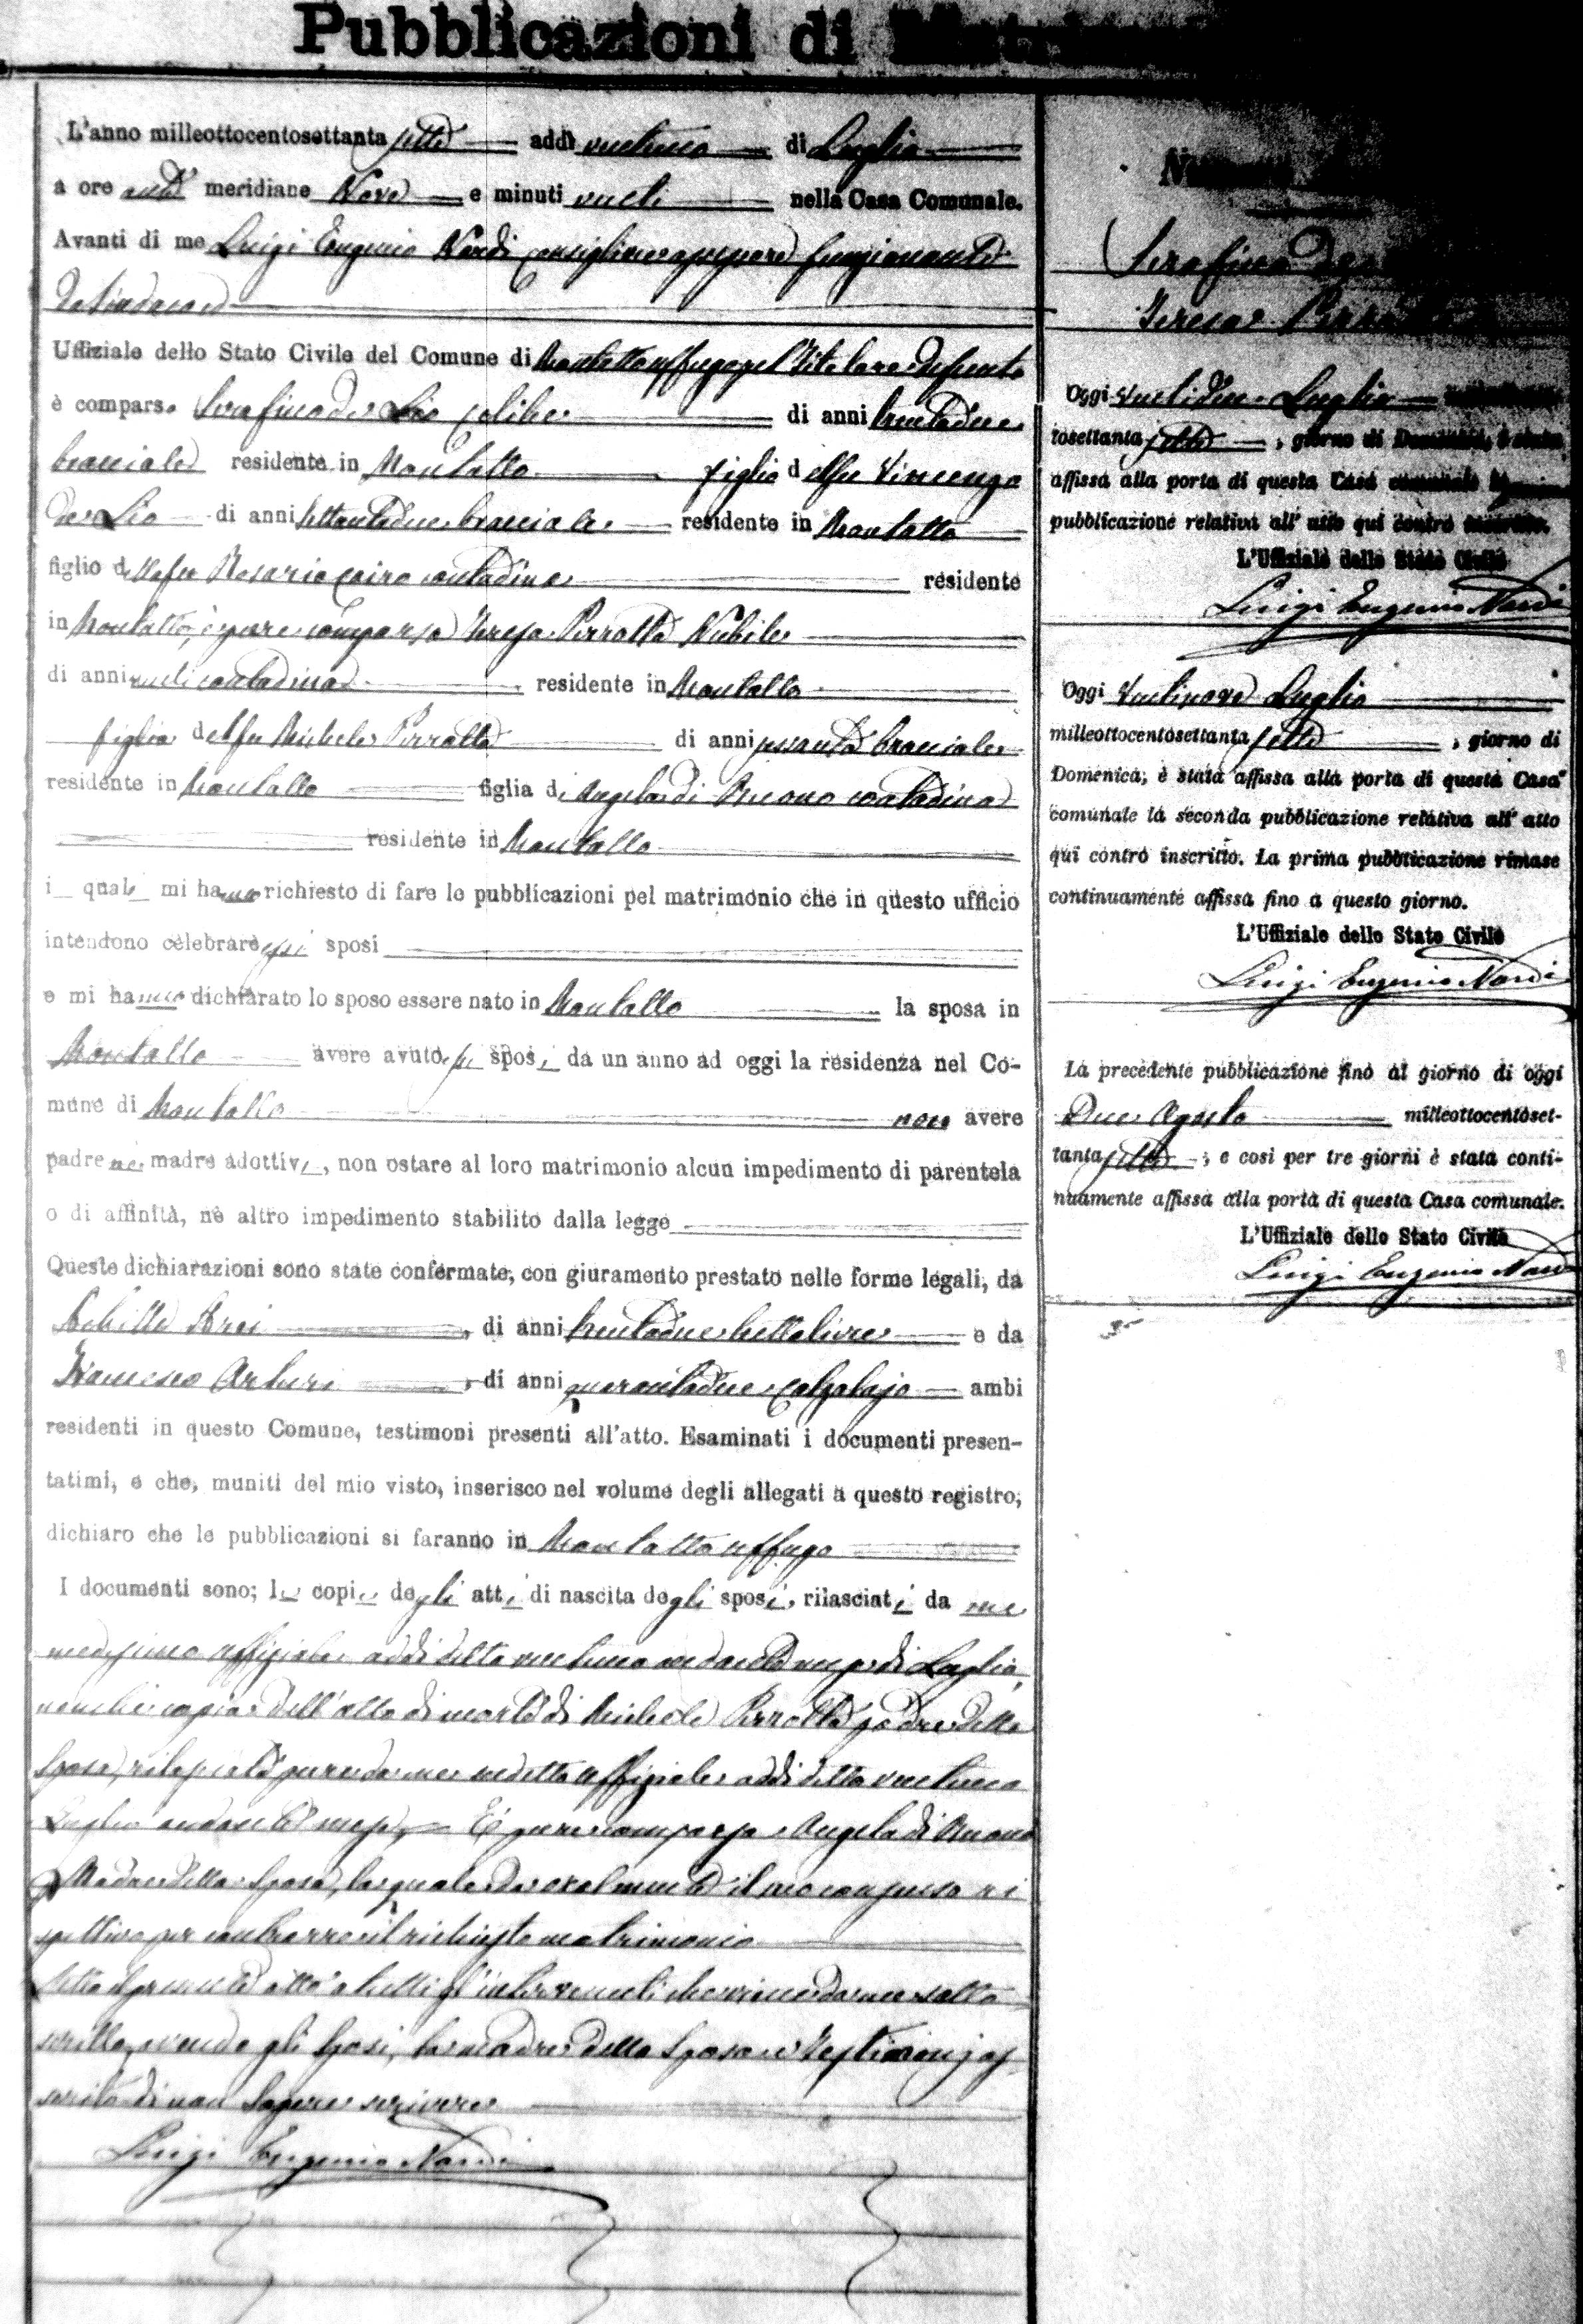 Pubblicazioni di
L'anno milleottocentosettanta sette addì ventuno di Luglio
a ore anti meridiane Nove e minuti venti nella Casa Comunale.
Avanti di me Luigi Eugenio Nardi Consigliere funzionante
da Sindaco
Uffiziale dello Stato Civile del Comune di Montalto Uffugo pel Titolare defunto
è comparso Serafino de Lio celibe di anni trentadue
bracciale residente in Montalto figlio del fu Vincenzo
de Lio di anni settantadue bracciale residente in Montalto
figlio della fu Rosaria Cairo contadina residente
in Montalto, è pure comparsa Teresa Perrotta Nubile
di anni venti contadina residente in Montalto
figlia del fu Michele Perrotta di anni sessanta bracciale
residente in Montalto figlia di Angela di Buono contadina
residente in Montalto
i quali mi hanno richiesto di fare le pubblicazioni pel matrimonio che in questo ufficio
intendono celebrare essi sposi
e mi hanno dichiarato lo sposo essere nato in Montalto la sposa in
Montalto avere avuto gli sposi da un anno ad oggi la residenza nel Co-
mune di Montalto non avere
padre ne madre adottivi, non ostare al loro matrimonio alcun impedimento di parentela
o di affinità, nè altro impedimento stabilito dalla legge
Queste dichiarazioni sono state confermate, con giuramento prestato nelle forme legali, da
Achille di anni trentadue e da
Francesco Arturi, di anni quarantadue Calzolajo ambi
residenti in questo Comune, testimoni presenti all'atto. Esaminati i documenti presen-
tatimi, e che, muniti del mio visto, inserisco nel volume degli allegati a questo registro,
dichiaro che le pubblicazioni si faranno in Montalto Uffugo
I documenti sono; le copie degli atti di nascita degli sposi, rilasciati da me
medesimo Uffiziale addì detto ventuno andante mese di Luglio,
nonché copia dell'atto di morte di Michele Perrotta padre della
Sposa, rilasciata pure da me uffiziale addì detto ventuno
Luglio andante mese. È pure comparsa Angela di Buono
Madre della Sposa, la quale da oralmente il suo consenso ri
spettivo per contrarre il richiesto matrimonio
Letto il presente atto a tutti gl'intervenuti che viene da me sotto
scritto, avendo gli Sposi, la madre della Sposa e Testimonj as
serito di non Sapere scrivere
Luigi Eugenio Nardi
Serafino de
Teresa
Oggi Ventidue Luglio
tosettanta sette, giorno di Domenica, è stata
affissa alla porta di questa Casa comunale
pubblicazione relativa all'atto qui contro
L'Uffiziale dello Stato Civile
Luigi Eugenio Nardi
Oggi Ventinove Luglio
milleottocentosettanta sette, giorno di
Domenica, è stata affissa alla porta di questa Casa
comunale la seconda pubblicazione relativa all'atto
qui contro inscritto. La prima pubblicazione rimase
continuamente affissa fino a questo giorno.
L'Uffiziale dello Stato Civile
Luigi Eugenio Nardi
La precedente pubblicazione fino al giorno di oggi
Due Agosto milleottocentoset-
tanta sette, e così per tre giorni è stata conti-
nuamente affissa alla porta di questa Casa comunale.
L'Uffiziale dello Stato Civile
Luigi Eugenio Nardi